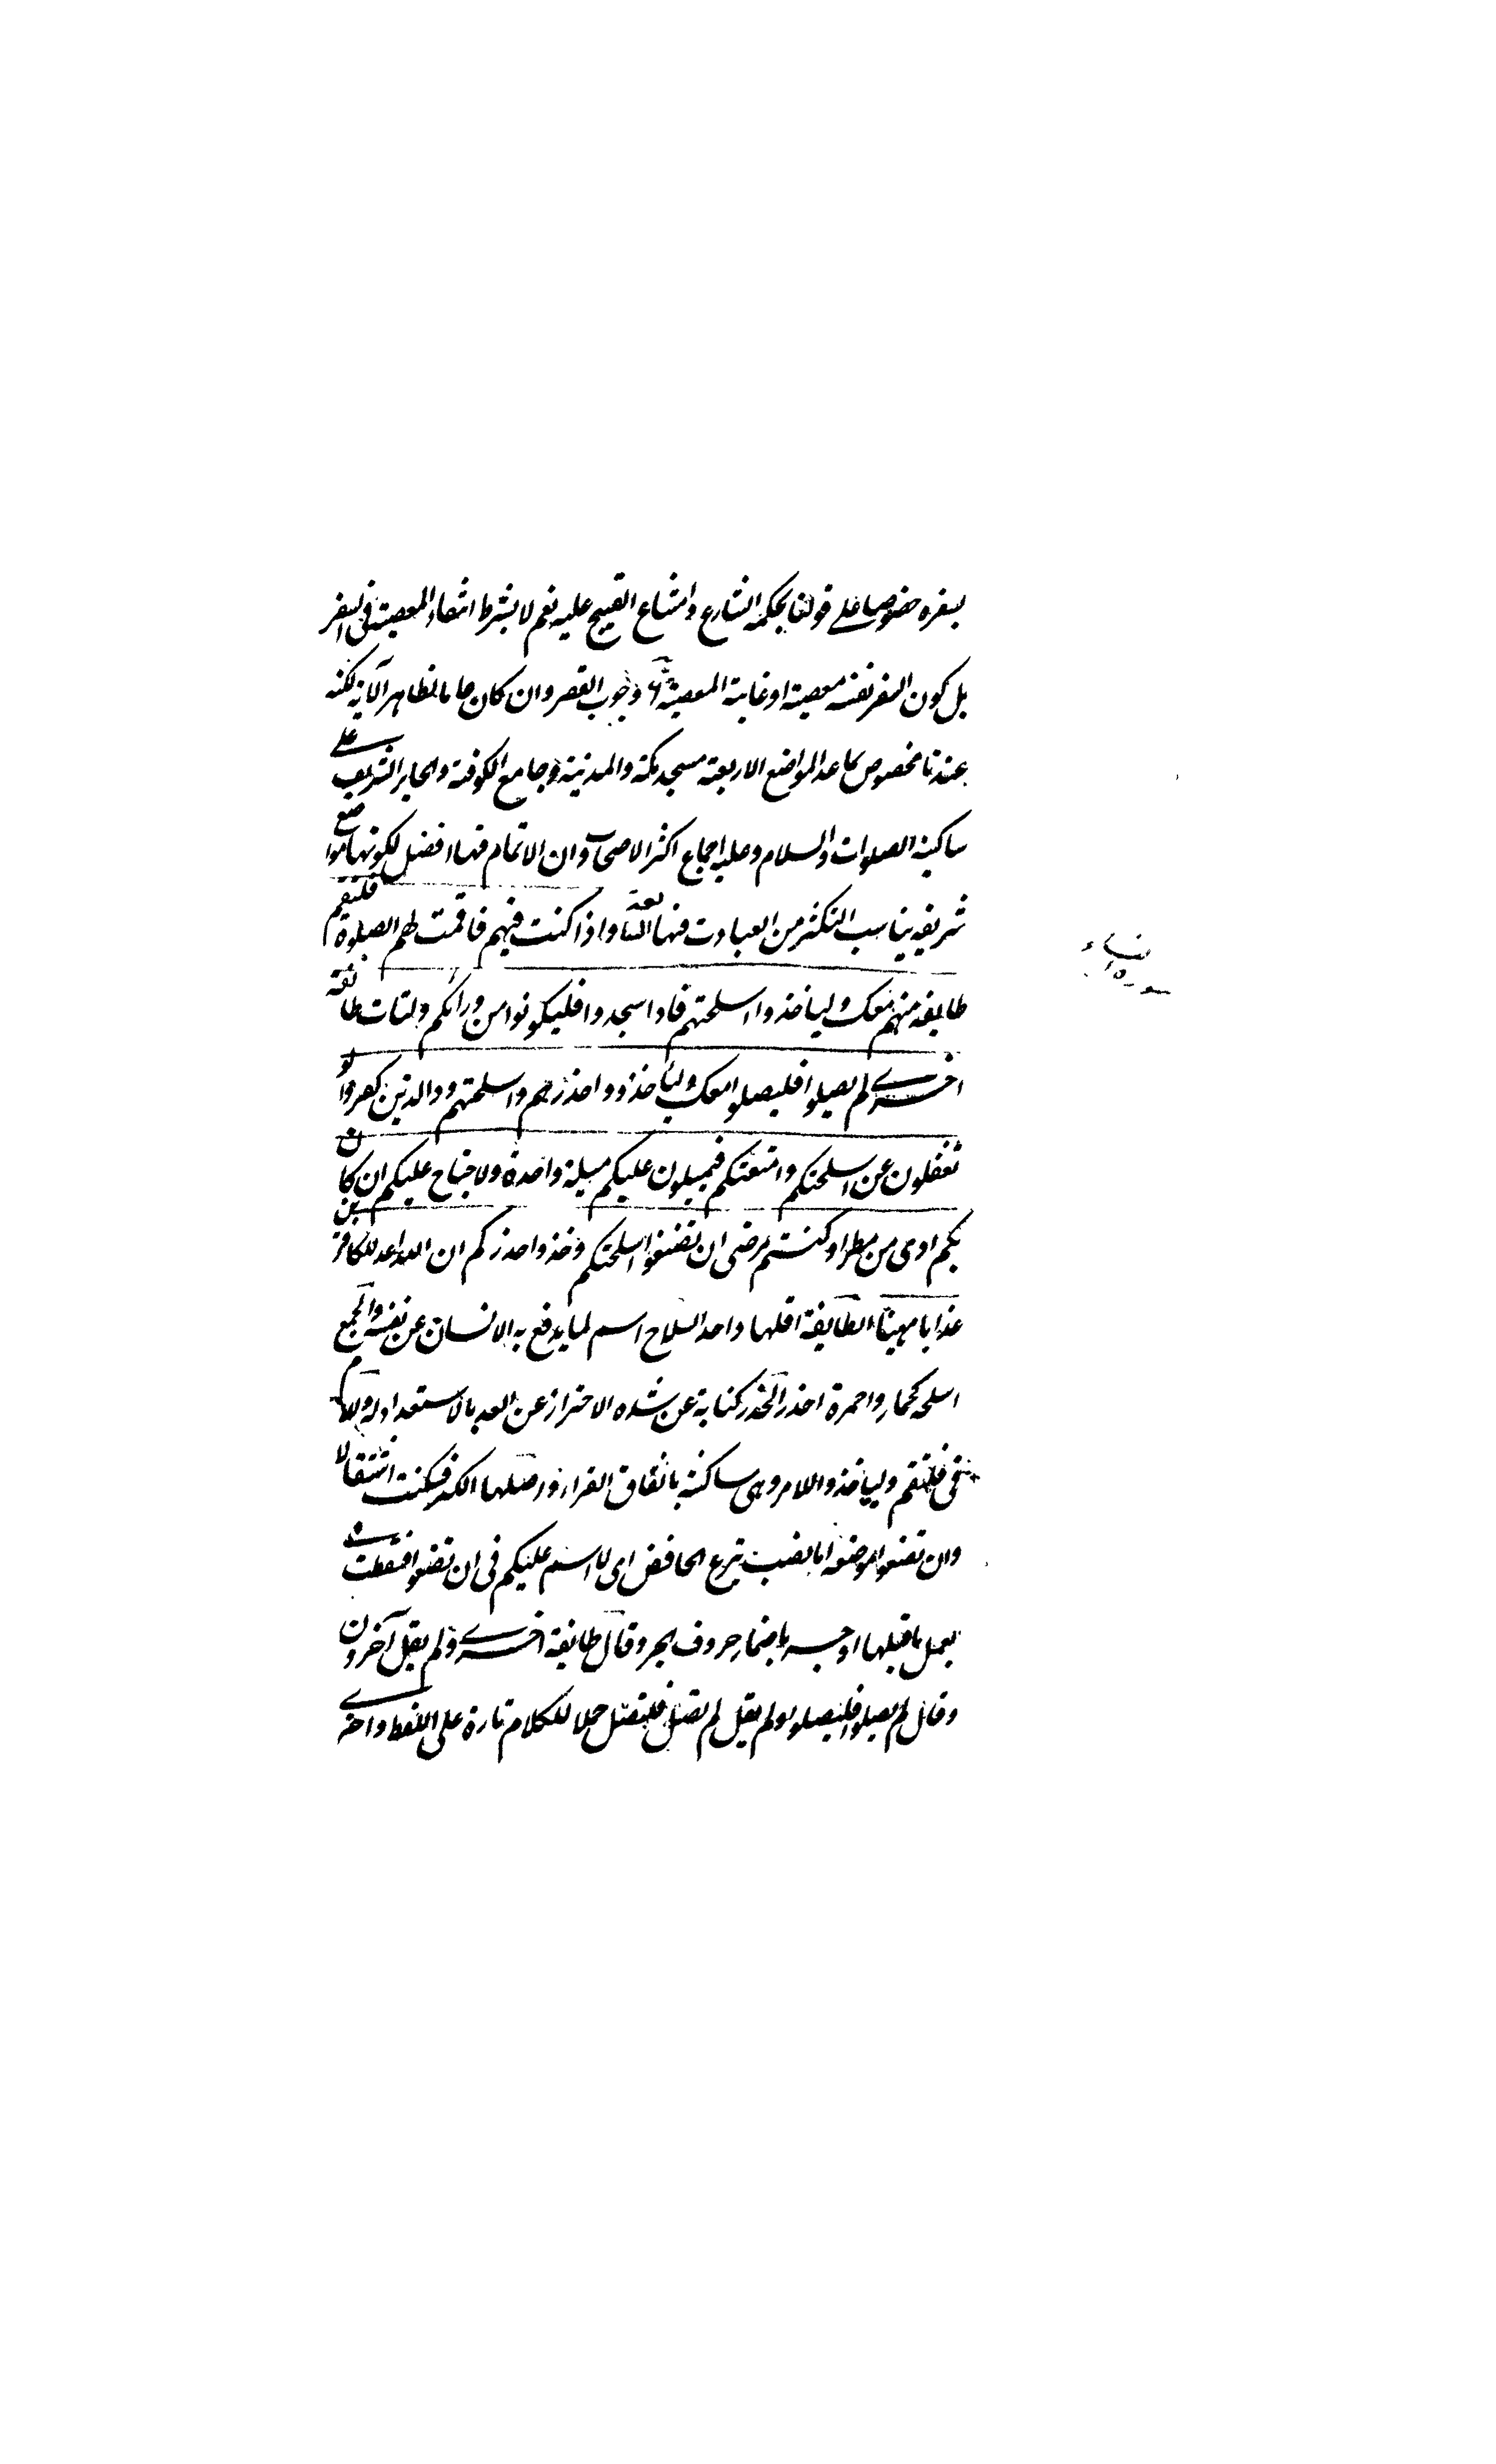 بسفره خصوصا على قولنا بحكمة الشارع وامتناع القبيح عليه نعم لا يشترط انتفاء المعصية في السفر
بل كون السفر نفسه معصية او غايته المعصية وجوب القصر وان كان عاما لظاهر الآية لكنه
عندنا مخصوص بما عدا المواضع الاربعة مسجد مكة والمدينة وجامع الكوفة والحاير الشريف على
ساكنه الصلوات والسلام وعليه اجماع اكثر الاصحاب وان الاتمام فيها افضل لكونها مواضع
شريفه يناسب التكثر من العبادت فيها واذا كنت فيهم فاقمت لهم الصلوة فلتقم
طايفة منهم معك ولياخذوا اسلحتهم فاذا سجدوا فليكونوا من ورائكم ولتات طائفة
اخرى لم يصلوا فليصلوا معك ولياخذوا حذرهم واسلحتهم ود الذين كفروا لو
تغفلون عن اسلحتكم وامتعتكم فيميلون عليكم ميلة واحدة ولا جناح عليكم ان كان
بكم اذى من مطر او كنتم مرضى ان تضعوا اسلحتكم وخذوا حذركم ان الله اعد للكافرين
عذابا مهينا الطايفة اقلها واحد السلاح اسم لما يدفع به الانسان عن نفسه والجمع
اسلحه كحمار واحمرة اخذ الحذر كناية عن شده الاحتراز عن العدو بالاستعداد له واللام
في فلتقم ولياخذوا لام الامر وهى ساكنة باتفاق القراء واصلها الكسر فسكنت استثقالا
وان تضعوا موضعه اما نصب بنزع الخافض اى لا اثم عليكم في ان تضعوا فسقطت في
يعمل ما قبلها او جر باضمار حروف الجر وقال طايفة اخرى ولم يقل آخرون
وقال لم يصلوا فليصلوا ولم يقل لم تصل فلتصل حملا للكلام تارة على اللفظ واخرى
سورة النساء